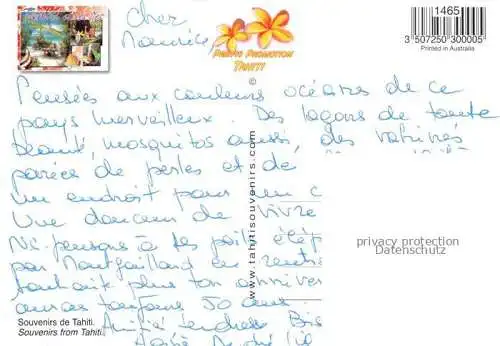 cher
Maurice
PACIFIC PROMOTION
TAHITI
©
1465
3 507250 300005
Printed in Australia
Pensées aux couleurs océans de ce
pays merveilleux. Des lagons de toute
beauté, mosquitos aussi, des vahinés
parée de perles et de
un endroit pour un c
Une douceur de vivre
NC. pensons à tes
par Montgaillard en
souhaite plus ton anniver
auras toujours 50 ans.
Amitié tendres Bis
www.tahitisouvenirs.com
privacy protection
Datenschutz
Souvenirs de Tahiti.
Souvenirs from Tahiti.